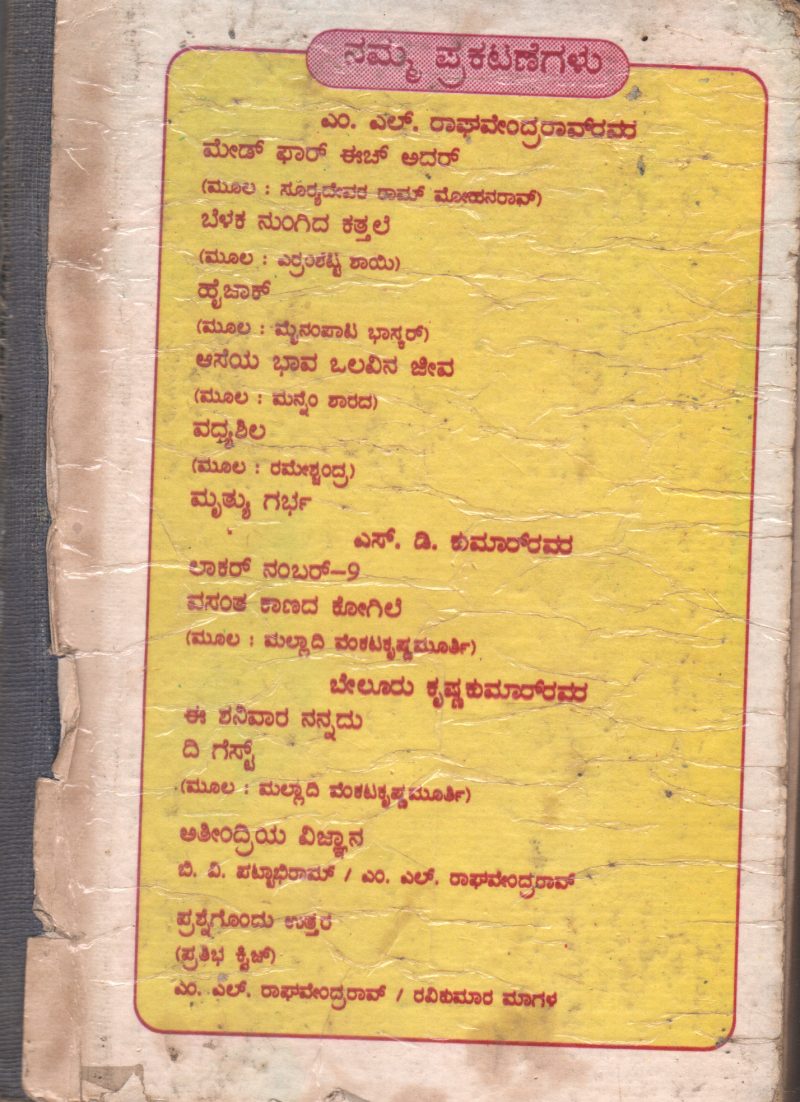 ನಮ್ಮ ಪ್ರಕಟಣೆಗಳು
ಎಂ. ಎಲ್. ರಾಘವೇಂದ್ರರಾವ್‌ರವರ
ಮೇಡ್ ಫಾರ್ ಈಚ್ ಅದರ್
(ಮೂಲ : ಸೂರ್‍ಯದೇವರ ರಾಮ್ ಮೋಹನರಾವ್)
ಬೆಳಕ ನುಂಗಿದ ಕತ್ತಲೆ
(ಮೂಲ : ಎರ್ರಂಶೆಟ್ಟಿ ಶಾಯಿ)
ಹೈಜಾಕ್
(ಮೂಲ : ಮೈನಂಪಾಟಿ ಭಾಸ್ಕರ್)
ಆಸೆಯ ಭಾವ ಒಲವಿನ ಜೀವ
(ಮೂಲ : ಮನ್ನೆಂ ಶಾರದ)
ವಧ್ಯಶಿಲ
(ಮೂಲ : ರಮೇಶ್ಚಂದ್ರ)
ಮೃತ್ಯು ಗರ್ಭ
ಎಸ್. ಡಿ. ಕುಮಾರ್‌ರವರ
ಲಾಕರ್ ನಂಬರ್-೨
ವಸಂತ ಕಾಣದ ಕೋಗಿಲೆ
(ಮೂಲ : ಮಲ್ಲಾದಿ ವೆಂಕಟಕೃಷ್ಣಮೂರ್ತಿ)
ಬೇಲೂರು ಕೃಷ್ಣಕುಮಾರ್‌ರವರ
ಈ ಶನಿವಾರ ನನ್ನದು
ದಿ ಗೆಸ್ಟ್
(ಮೂಲ : ಮಲ್ಲಾದಿ ವೆಂಕಟಕೃಷ್ಣಮೂರ್ತಿ)
ಅತೀಂದ್ರಿಯ ವಿಜ್ಞಾನ
ಬಿ. ವಿ. ಪಟ್ಟಾಭಿರಾಮ್ / ಎಂ. ಎಲ್. ರಾಘವೇಂದ್ರರಾವ್
ಪ್ರಶ್ನೆಗೊಂದು ಉತ್ತರ
(ಪ್ರತಿಭ ಕ್ವಿಜ್)
ಎಂ. ಎಲ್. ರಾಘವೇಂದ್ರರಾವ್ / ರವಿಕುಮಾರ ಮಾಗಳ